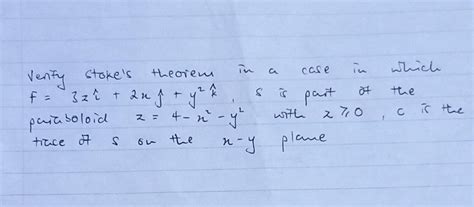 Verify stoke's theorem in a case in which
f = 3zî + 2xĵ + y² k̂, s is part of the
paraboloid z = 4 - x² - y² with z ≥ 0, c is the
trace of s on the x-y plane